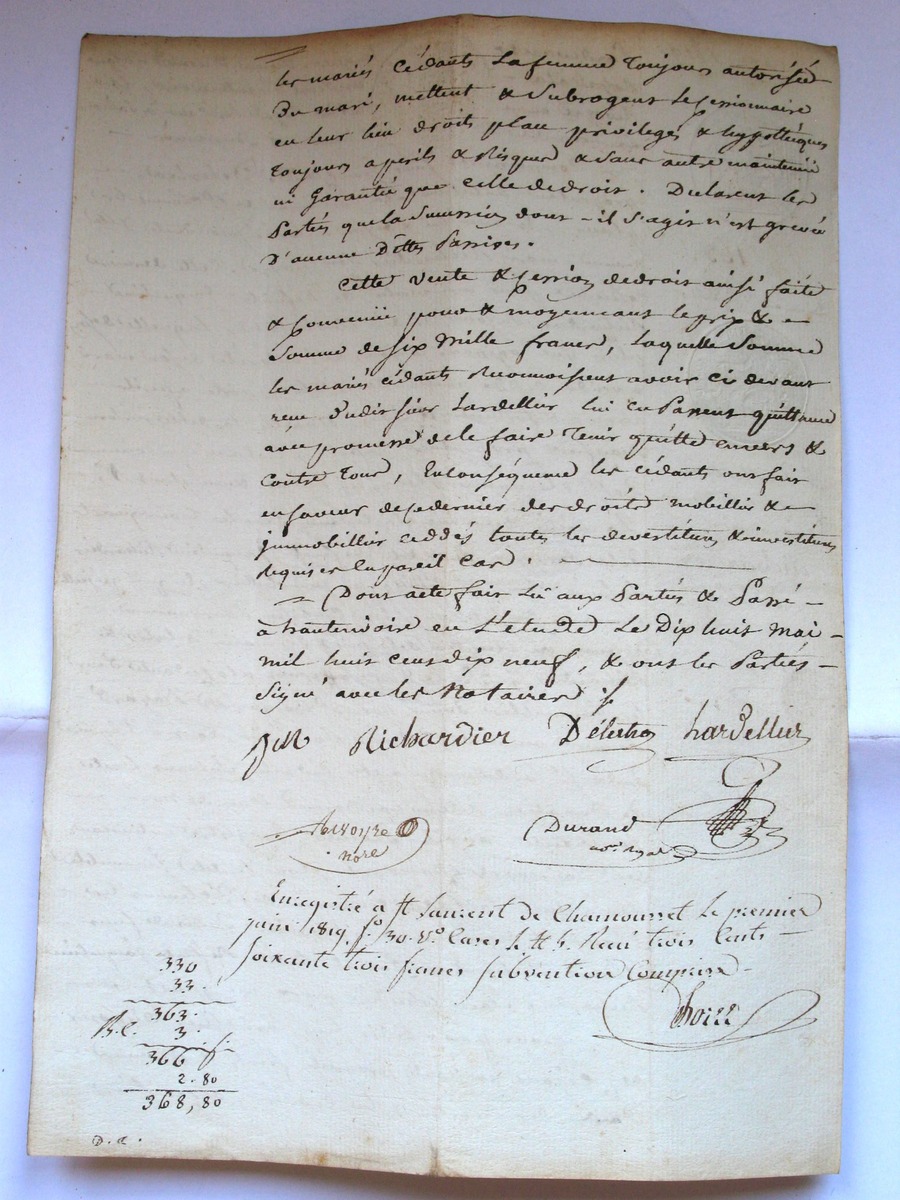 les mariés cédants la femme toujours autorisée
du mari, mettent & subrogent le cessionnaire
en leur lieu droits place privileges & hypothèques
toujours a perils & Risques & sans autre maintenüe
ni Garantie que celle de droit. Declarent les
Partiés que la Succession dont-il s'agit n'est grevée
D'aucune Dettes Passives.
Cette vente & cession de droit ainsi faite
& convenüe pour & moyennant le prix & -
Somme de six mille francs, laquelle Somme
les mariés cédants Reconnoissent avoir ci devant
recu dudit sieur Lardellier lui en Passent quittance
avec promesse de le faire tenir quitte envers &
contre tous, En conséquence les cédants ont fait
en faveur de ce dernier des droits mobillier & -
immobillier ceddés toutes les devestitures & investitures
Requises En pareil cas.
Dont acte fait Lu aux Partiés & Passé -
à hauterivoire en L'etude Le Dix huit mai -
mil huit cent dix neuf, & ont les Partiés -
Signé avec les Notaires
Richardier Lardellier
Durand
not. Royal
Enregistré a St Laurent de Chamousset Le premier
juin 1819 fo. 30. Vo. Cases Recu trois Cents -
soixante trois francs subvention Comprise -
330
33.
363.
3.
366 f.
2.80
368,80